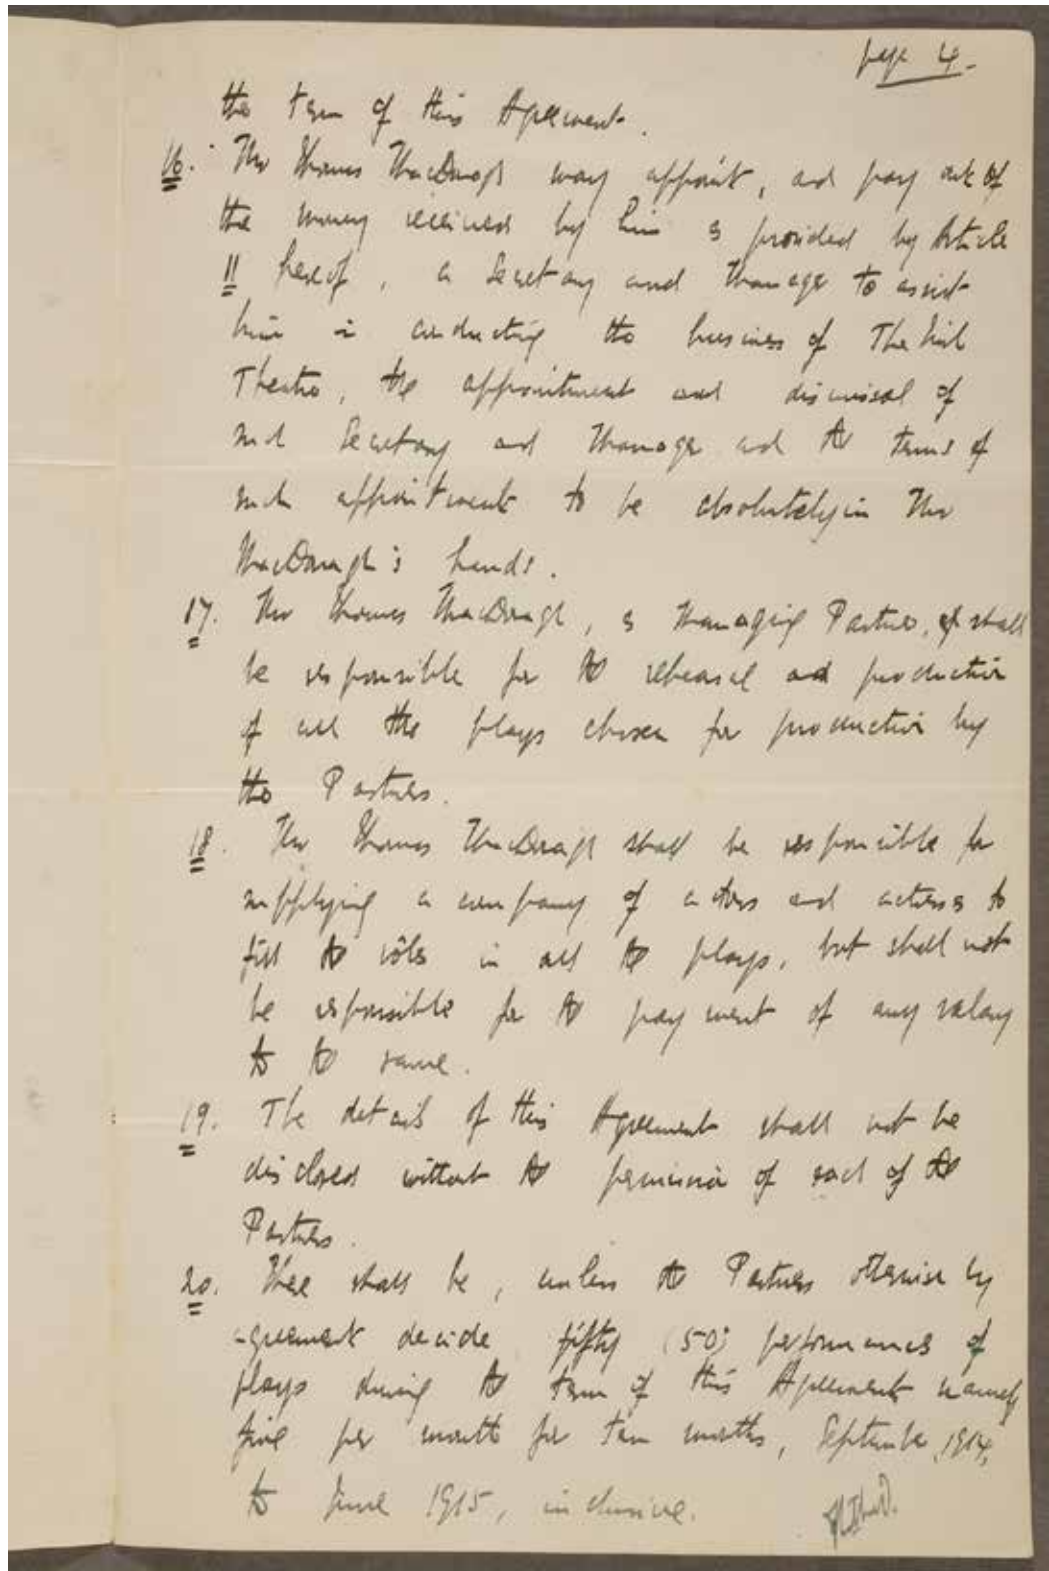 page 4.
the term of this Agreement.
16. Mr Thomas MacDonagh may appoint, and pay out of
the money received by him as provided by Article
11 hereof, a Secretary and Manager to assist
him in conducting the business of The Irish
Theatre, the appointment and dismissal of
such Secretary and Manager and the terms of
such appointment to be absolutely in Mr
MacDonagh's hands.
17. Mr Thomas MacDonagh, as Managing Partner, shall
be responsible for the rehearsal and production
of all the plays chosen for production by
the Partners.
18. Mr Thomas MacDonagh shall be responsible for
supplying a company of actors and actresses to
fill the rôles in all the plays, but shall not
be responsible for the payment of any salary
to the same.
19. The details of this Agreement shall not be
disclosed without the permission of each of the
Partners.
20. There shall be, unless the Partners otherwise by
agreement decide fifty (50) performances of
plays during the term of this Agreement namely
five per month for ten months, September, 1914,
to June 1915, inclusive.